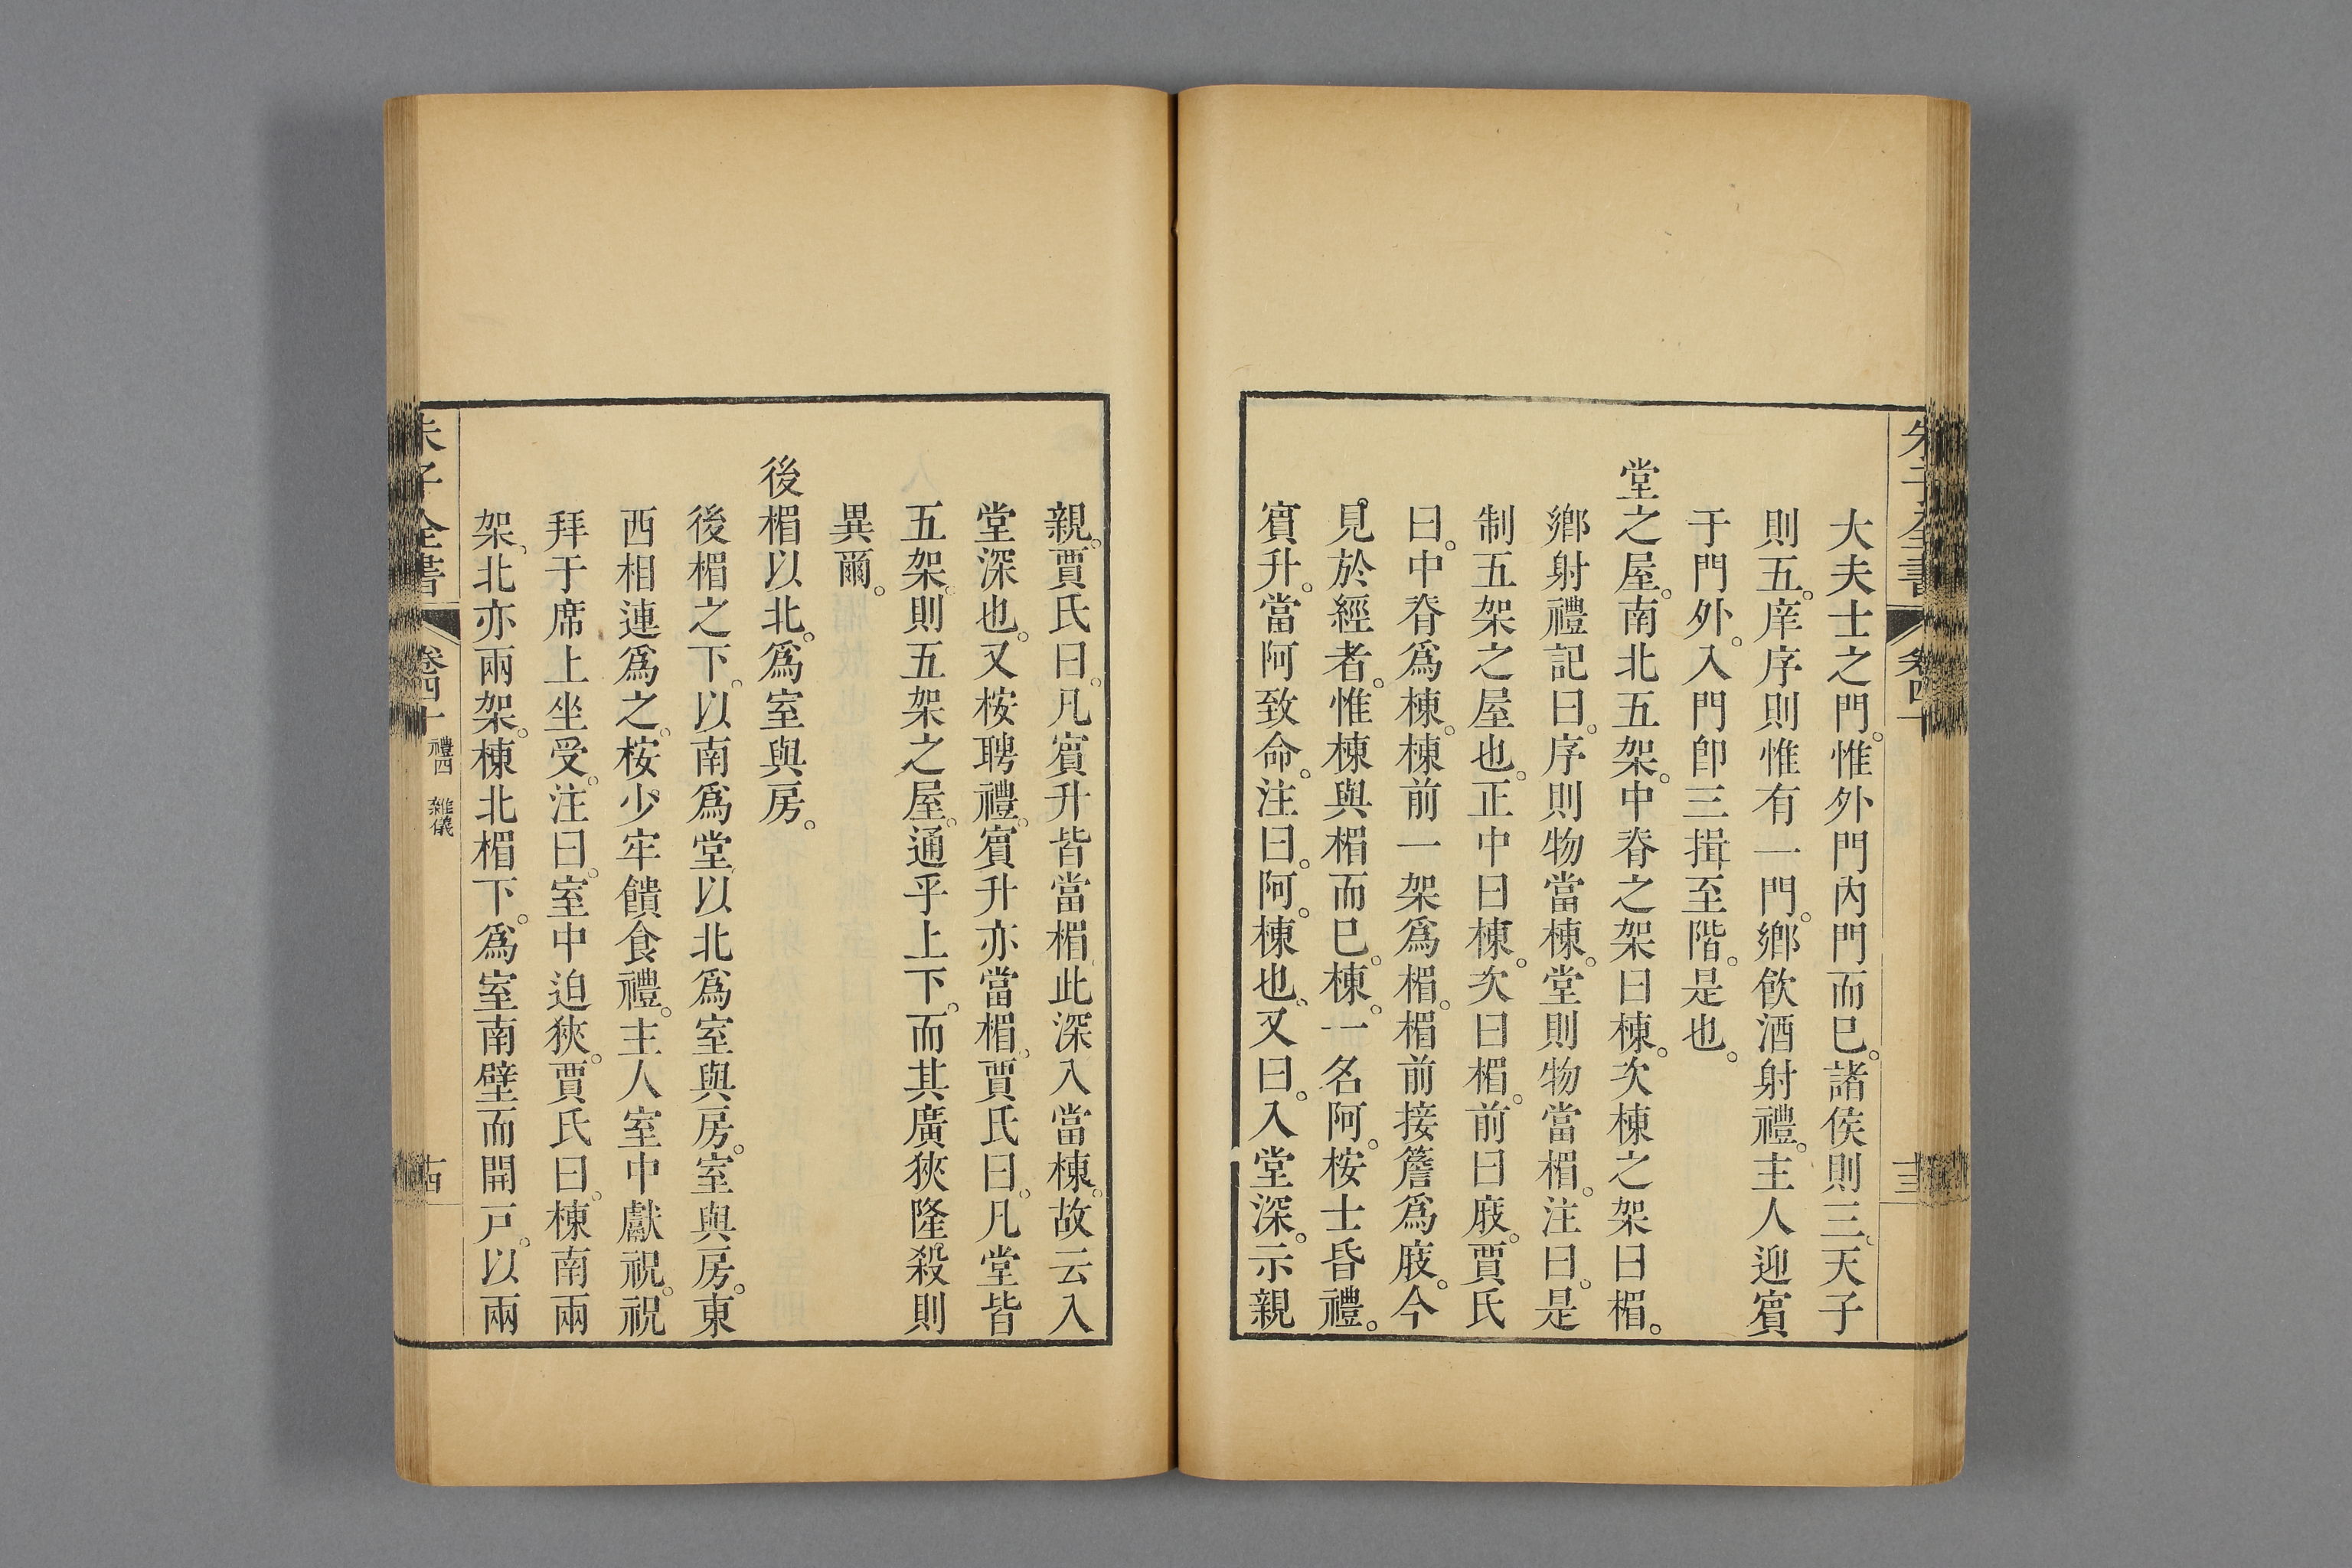 大夫士之門。惟外門內門而已。諸侯則三。天子
則五。庠序則惟有一門。鄉飲酒射禮。主人迎賔
于門外。入門卽三揖至階。是也。
堂之屋。南北五架。中脊之架曰棟。次棟之架曰楣。
鄉射禮記曰。序則物當棟。堂則物當楣。注曰。是
制五架之屋也。正中曰棟。次曰楣。前曰庪。賈氏
曰。中脊爲棟。棟前一架爲楣。楣前接簷爲庪。今
見於經者。惟棟與楣而已。棟。一名阿。桉士昏禮。
賔升。當阿致命。注曰。阿。棟也。又曰。入堂深。示親
親。賈氏曰。凡賔升皆當楣。此深入當棟。故云入
堂深也。又桉聘禮。賔升亦當楣。賈氏曰。凡堂皆
五架。則五架之屋。通乎上下。而其廣狹隆殺則
異爾。
後楣以北。爲室與房。
後楣之下。以南爲堂。以北爲室與房。室與房。東
西相連爲之。桉少牢饋食禮。主人室中獻祝。祝
拜于席上坐受。注曰。室中迫狹。賈氏曰。棟南兩
架。北亦兩架。棟北楣下。爲室南壁而開戸。以兩
朱子全書
卷四十
禮四 雜儀
古